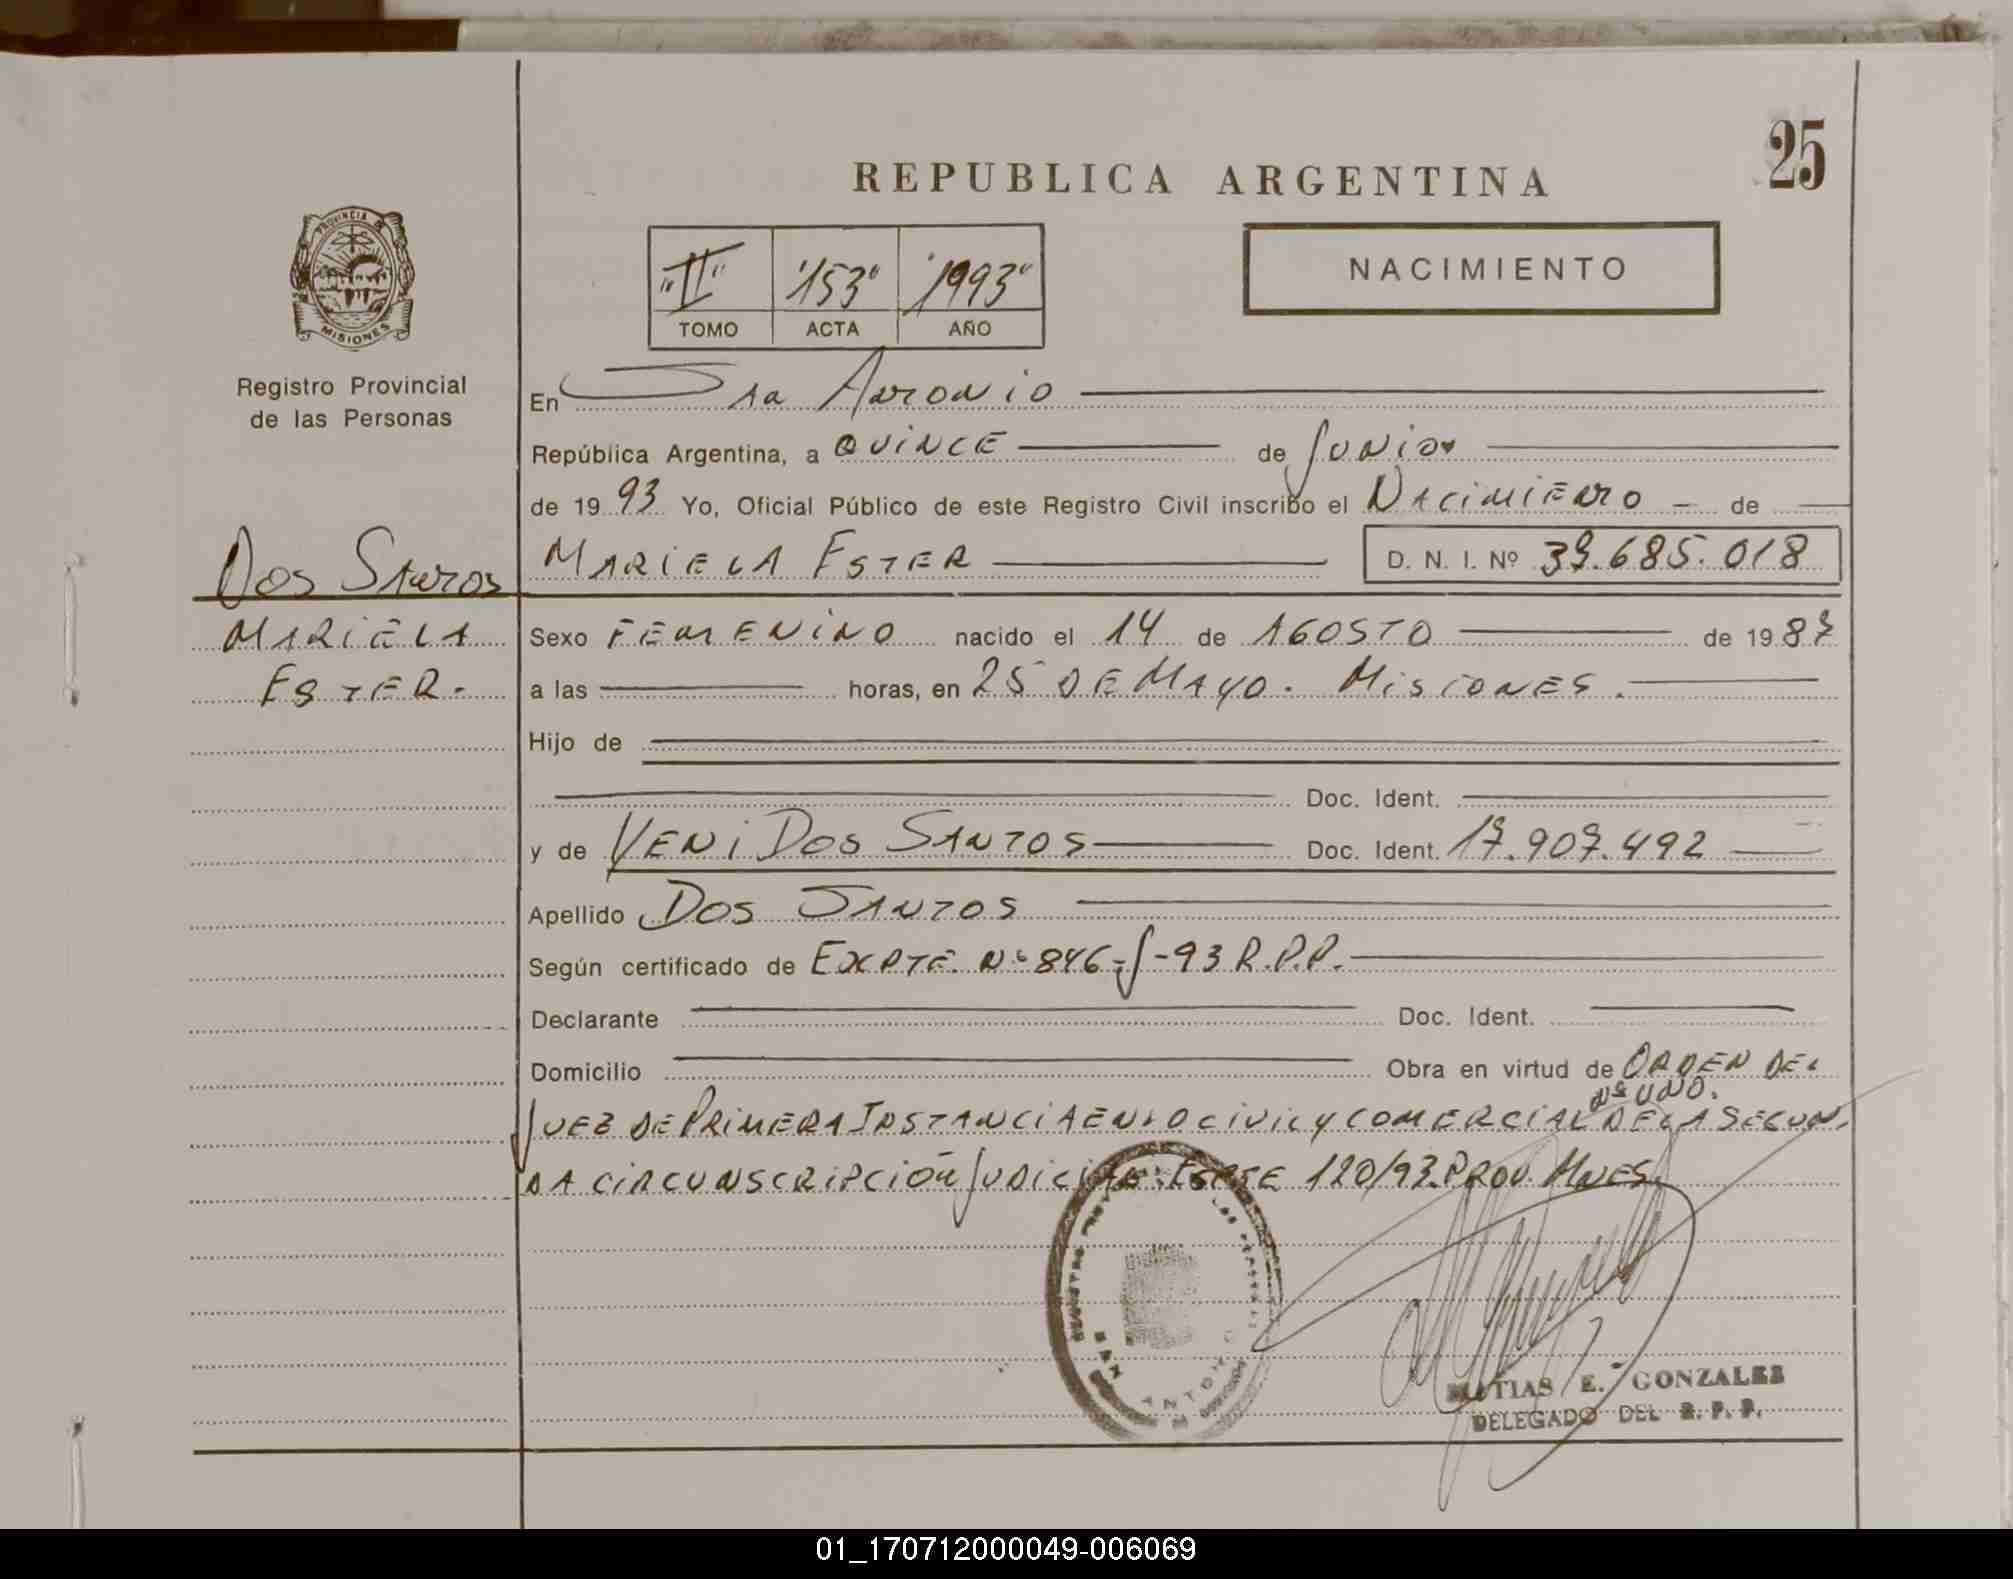 25
REPUBLICA ARGENTINA
PROVINCIA DE
MISIONES
"II" "153" "1993"
TOMO ACTA AÑO
NACIMIENTO
Registro Provincial
de las Personas
En San Antonio
República Argentina, a QUINCE de Junio
de 1993 Yo, Oficial Público de este Registro Civil inscribo el Nacimiento de
Dos Santos
MARIELA
ESTER.
MARIELA ESTER D. N. I. Nº 39.685.018
Sexo FEMENINO nacido el 14 de AGOSTO de 1987
a las horas, en 25 DE MAYO. MISIONES.
Hijo de
Doc. Ident.
y de YENI DOS SANTOS Doc. Ident. 17.907.492
Apellido DOS SANTOS
Según certificado de EXPTE. Nº 846-J-93 R.P.P.
Declarante Doc. Ident.
Domicilio Obra en virtud de ORDEN DEL
Nº UNO.
JUEZ DE PRIMERA INSTANCIA EN LO CIVIL Y COMERCIAL DE LA SEGUN-
DA CIRCUNSCRIPCIÓN JUDICIAL. EXPTE 120/93. PROV. MNES.
SAN ANTONIO
MATIAS E. GONZALES
DELEGADO DEL R. P. P.
01_170712000049-006069